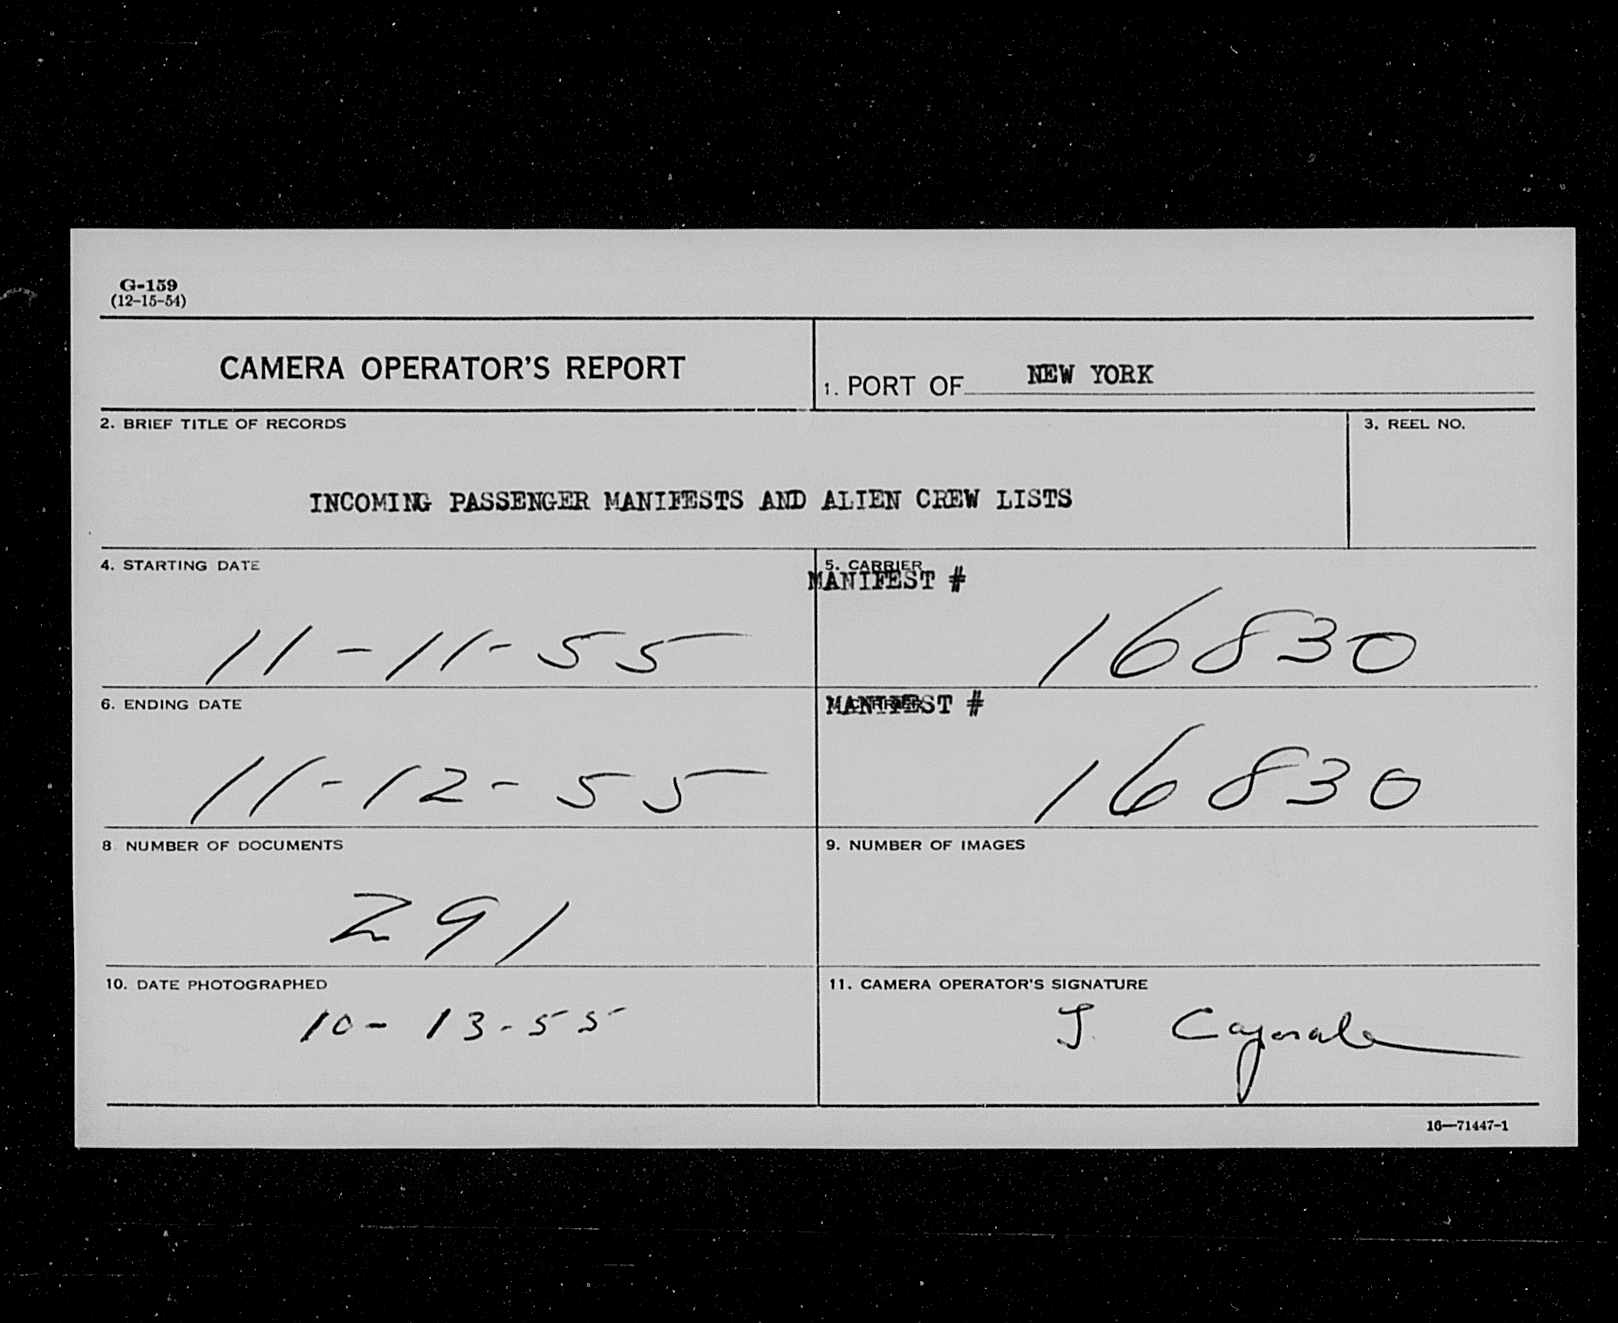 G-159
(12-15-54)
CAMERA OPERATOR'S REPORT
1. PORT OF NEW YORK
2. BRIEF TITLE OF RECORDS
3. REEL NO.
INCOMING PASSENGER MANIFESTS AND ALIEN CREW LISTS
4. STARTING DATE
5. CARRIER
MANIFEST #
11-11-55
16830
6. ENDING DATE
MANIFEST #
11-12-55
16830
8 NUMBER OF DOCUMENTS
9. NUMBER OF IMAGES
291
10. DATE PHOTOGRAPHED
11. CAMERA OPERATOR'S SIGNATURE
10-13-55
16—71447-1